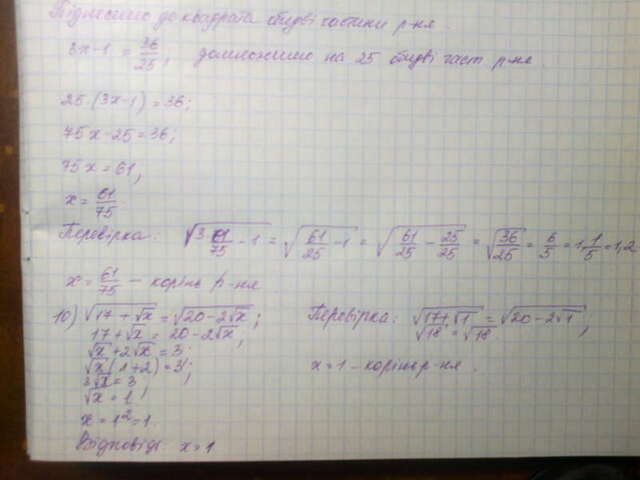 Піднесемо до квадрата обидві частини р-ня.
3x-1 = 36/25, домножимо на 25 обидві част р-ня.
25·(3x-1)=36;
75x-25=36;
75x=61,
x=61/75
Перевірка: √(3·61/75 - 1) = √(61/25 - 1) = √(61/25 - 25/25) = √(36/25) = 6/5 = 1 1/5 = 1,2
x=61/75 - корінь р-ня
10) √(17+√x) = √(20-2√x);
17+√x = 20-2√x,
√x+2√x=3;
√x(1+2)=3;
3√x=3;
√x=1;
x=1²=1.
Відповідь: x=1
Перевірка: √(17+√1) = √(20-2√1);
√18 = √18
x=1 - корінь р-ня.